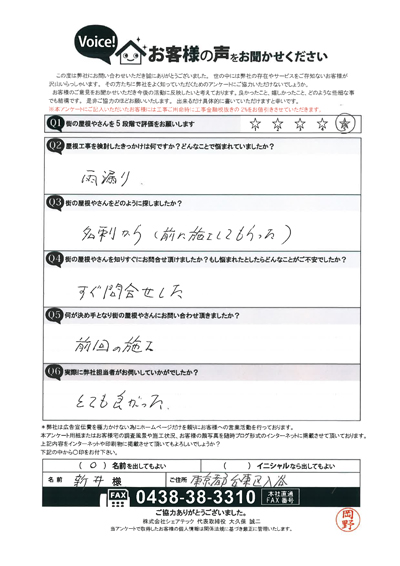 Voice!
お客様の声をお聞かせください
この度は弊社にお問い合わせいただき誠にありがとうございました。世の中には弊社の存在やサービスをご存知ないお客様が
沢山いらっしゃいます。その方たちに弊社をよく知っていただくためのアンケートにご協力いただけないでしょうか。
お客様のご意見をお聞かせいただき今後の活動に反映したいと考えております。良かったこと、嬉しかったこと、どのような些細な事
でも結構です。是非ご協力のほどお願いいたします。出来るだけ具体的に書いていただけますと幸いです。
※本アンケートにご記入いただいたお客様には工事ご用命時に工事金額相当きの2%をお値引きさせていただきます。
Q1 街の屋根やさんを5段階で評価をお願いします ☆ ☆ ☆ ☆ ☆
Q2 屋根工事を検討したきっかけは何ですか？どんなことで悩まれていましたか？
雨漏り.
Q3 街の屋根やさんをどのように探しましたか？
名刺から(前に施工してもらった)
Q4 街の屋根やさんを知りすぐにお問合せ頂けましたか？もし悩まれたとしたらどんなことがご不安でしたか？
すぐ問合せした
Q5 何が決め手となり街の屋根やさんにお問い合わせ頂きましたか？
前回の施工
Q6 実際に弊社担当者がお伺いしていかがでしたか？
とても良かった.
＊弊社は広告宣伝費を極力かけない為にホームページだけを頼りにお客様への営業活動を行っております。
本アンケート用紙またはお客様宅の調査風景や施工状況、お客様の顔写真を随時ブログ形式のインターネットに掲載させて頂いております。
上記内容をインターネットや印刷物に掲載させて頂いてもよろしいでしょうか？
下記の中から〇印をお付け下さい。
（ ○ ）名前を出してもよい （ ）イニシャルなら出してもよい
お名前 新井 様 ご住所 東京都台東区入谷
FAX 0438-38-3310 本社直通 FAX番号
ご協力ありがとうございました。
株式会社シェアテック 代表取締役 大久保 誠二
当アンケートで取得したお客様の個人情報は関係法規に基づき厳正に管理いたします。
岡野